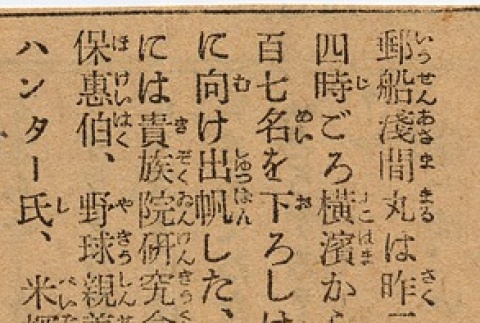 郵船淺間丸は昨
四時ごろ横濱から
百七名を下ろし
に向け出帆した、
には貴族院研究
保惠伯、野球親
ハンター氏、米